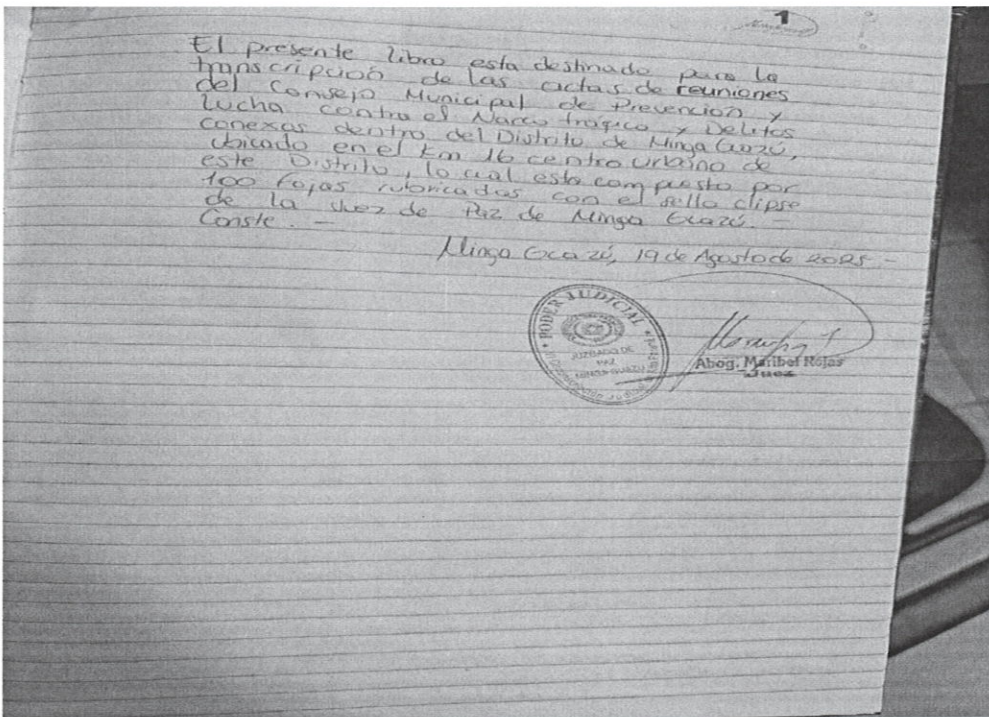 1
El presente libro esta destinado para la
transcripción de las actas de reuniones
del Consejo Municipal de Prevencion y
Lucha contra el Narco trafico y Delitos
conexos dentro del Distrito de Minga Guazú,
ubicado en el km 16 centro urbano de
este Distrito, lo cual esta compuesto por
100 fojas rubricadas con el sello clipse
de la Juez de Paz de Minga Guazú.
Conste. —
Minga Guazú, 19 de Agosto de 2025 -
PODER JUDICIAL
JUZGADO DE
PAZ
MINGA GUAZU
Circunscripción Judicial
Abog. Maribel Rojas
Juez